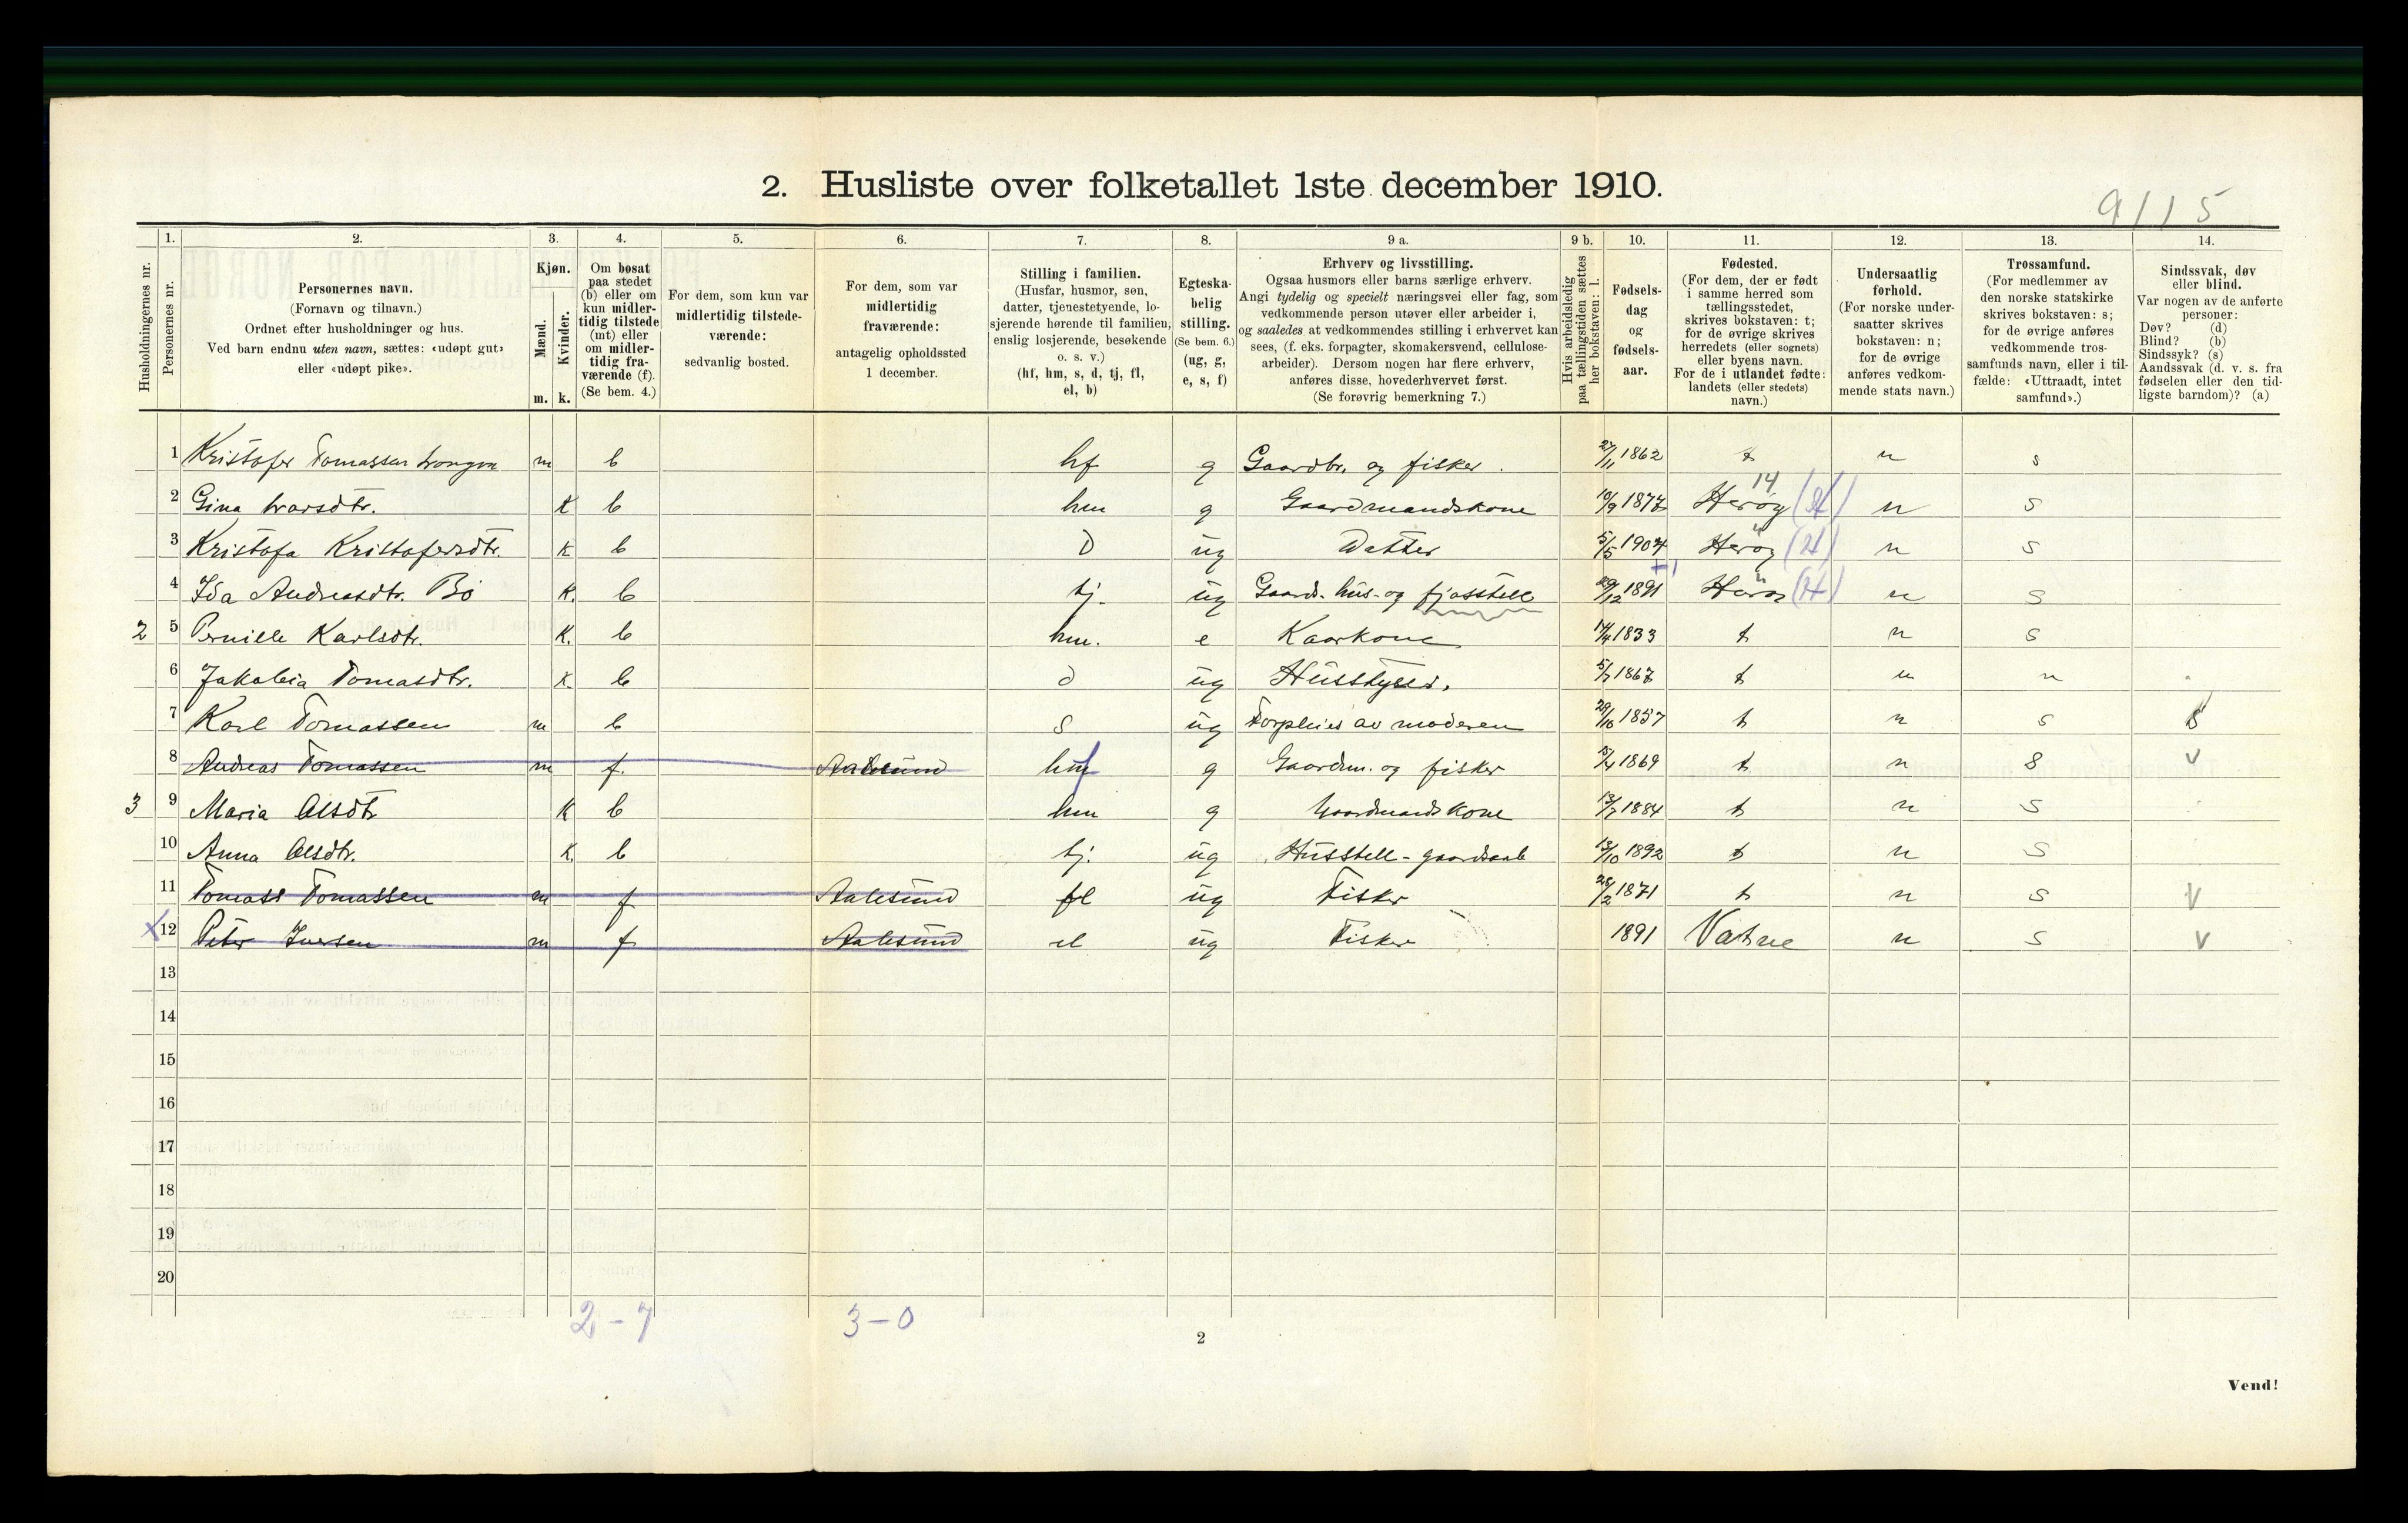 2. Husliste over folketallet 1ste december 1910.
9115
1. 2. 3. 4. 5. 6. 7. 8. 9 a. 9 b. 10. 11. 12. 13. 14.
Husholdningernes nr.
Personernes nr.
Personernes navn.
(Fornavn og tilnavn.)
Ordnet efter husholdninger og hus.
Ved barn endnu uten navn, sættes: «udøpt gut»
eller «udøpt pike».
Kjøn.
Mænd.
Kvinder.
m. k.
Om bosat
paa stedet
(b) eller om
kun midler-
tidig tilstede
(mt) eller
om midler-
tidig fra-
værende (f).
(Se bem. 4.)
For dem, som kun var
midlertidig tilstede-
værende:
sedvanlig bosted.
For dem, som var
midlertidig
fraværende:
antagelig opholdssted
1 december.
Stilling i familien.
(Husfar, husmor, søn,
datter, tjenestetyende, lo-
sjerende hørende til familien,
enslig losjerende, besøkende
o. s. v.)
(hf, hm, s, d, tj, fl,
el, b)
Egteska-
belig
stilling.
(Se bem. 6.)
(ug, g,
e, s, f)
Erhverv og livsstilling.
Ogsaa husmors eller barns særlige erhverv.
Angi tydelig og specielt næringsvei eller fag, som
vedkommende person utøver eller arbeider i,
og saaledes at vedkommendes stilling i erhvervet kan
sees, (f. eks. forpagter, skomakersvend, cellulose-
arbeider). Dersom nogen har flere erhverv,
anføres disse, hovederhvervet først.
(Se forøvrig bemerkning 7.)
Hvis arbeidsledig
paa tællingstiden sættes
her bokstaven: l.
Fødsels-
dag
og
fødsels-
aar.
Fødested.
(For dem, der er født
i samme herred som
tællingsstedet,
skrives bokstaven: t;
for de øvrige skrives
herredets (eller sognets)
eller byens navn.
For de i utlandet fødte:
landets (eller stedets)
navn.)
Undersaatlig
forhold.
(For norske under-
saatter skrives
bokstaven: n;
for de øvrige
anføres vedkom-
mende stats navn.)
Trossamfund.
(For medlemmer av
den norske statskirke
skrives bokstaven: s;
for de øvrige anføres
vedkommende tros-
samfunds navn, eller i til-
fælde: «Uttraadt, intet
samfund».)
Sindssvak, døv
eller blind.
Var nogen av de anførte
personer:
Døv? (d)
Blind? (b)
Sindssyk? (s)
Aandssvak (d. v. s. fra
fødselen eller den tid-
ligste barndom)? (a)
1 Kristofer Tomassen m b hf g Gaardbr. og fisker. 27/11 1862 t n s
14
2 Gina Ivarsdtr. k b hm g Gaardmandskone 10/9 1877 Herøy n s
3 Kristofa Kristofersdtr. k b d ug Datter 5/5 1904 Herøy n s
4 Ida Andreasdtr. Bö k. b tj. ug Gaards- hus- og fjosstell 29/12 1891 n s
2 5 Pernille Karlsdtr. k. b hm. e Kaarkone 14/4 1833 t n s
6 Jakobia Tomasdtr. k. b d ug 5/7 1867 t n n
7 Karl Tomassen m b s ug Forpleies av moderen 29/10 1857 t n s s
8 Andreas Tomassen m f. Aalesund hf g Gaardm. og fisker 15/4 1869 t n s v
3 9 Maria Olsdtr k b hm g Gaardmandskone 13/7 1884 t n s
10 Anna Olsdtr. k. b tj. ug Husstell - gaardsarb 13/10 1892 t n s
11 Tomas Tomassen m f Aalesund fl ug Fisker 28/2 1871 t n s v
x 12 Peter Iversen m f Aalesund el ug Fisker 1891 Vatne n s v
13
14
15
16
17
18
19
20
2 - 7 3 - 0
2
Vend!